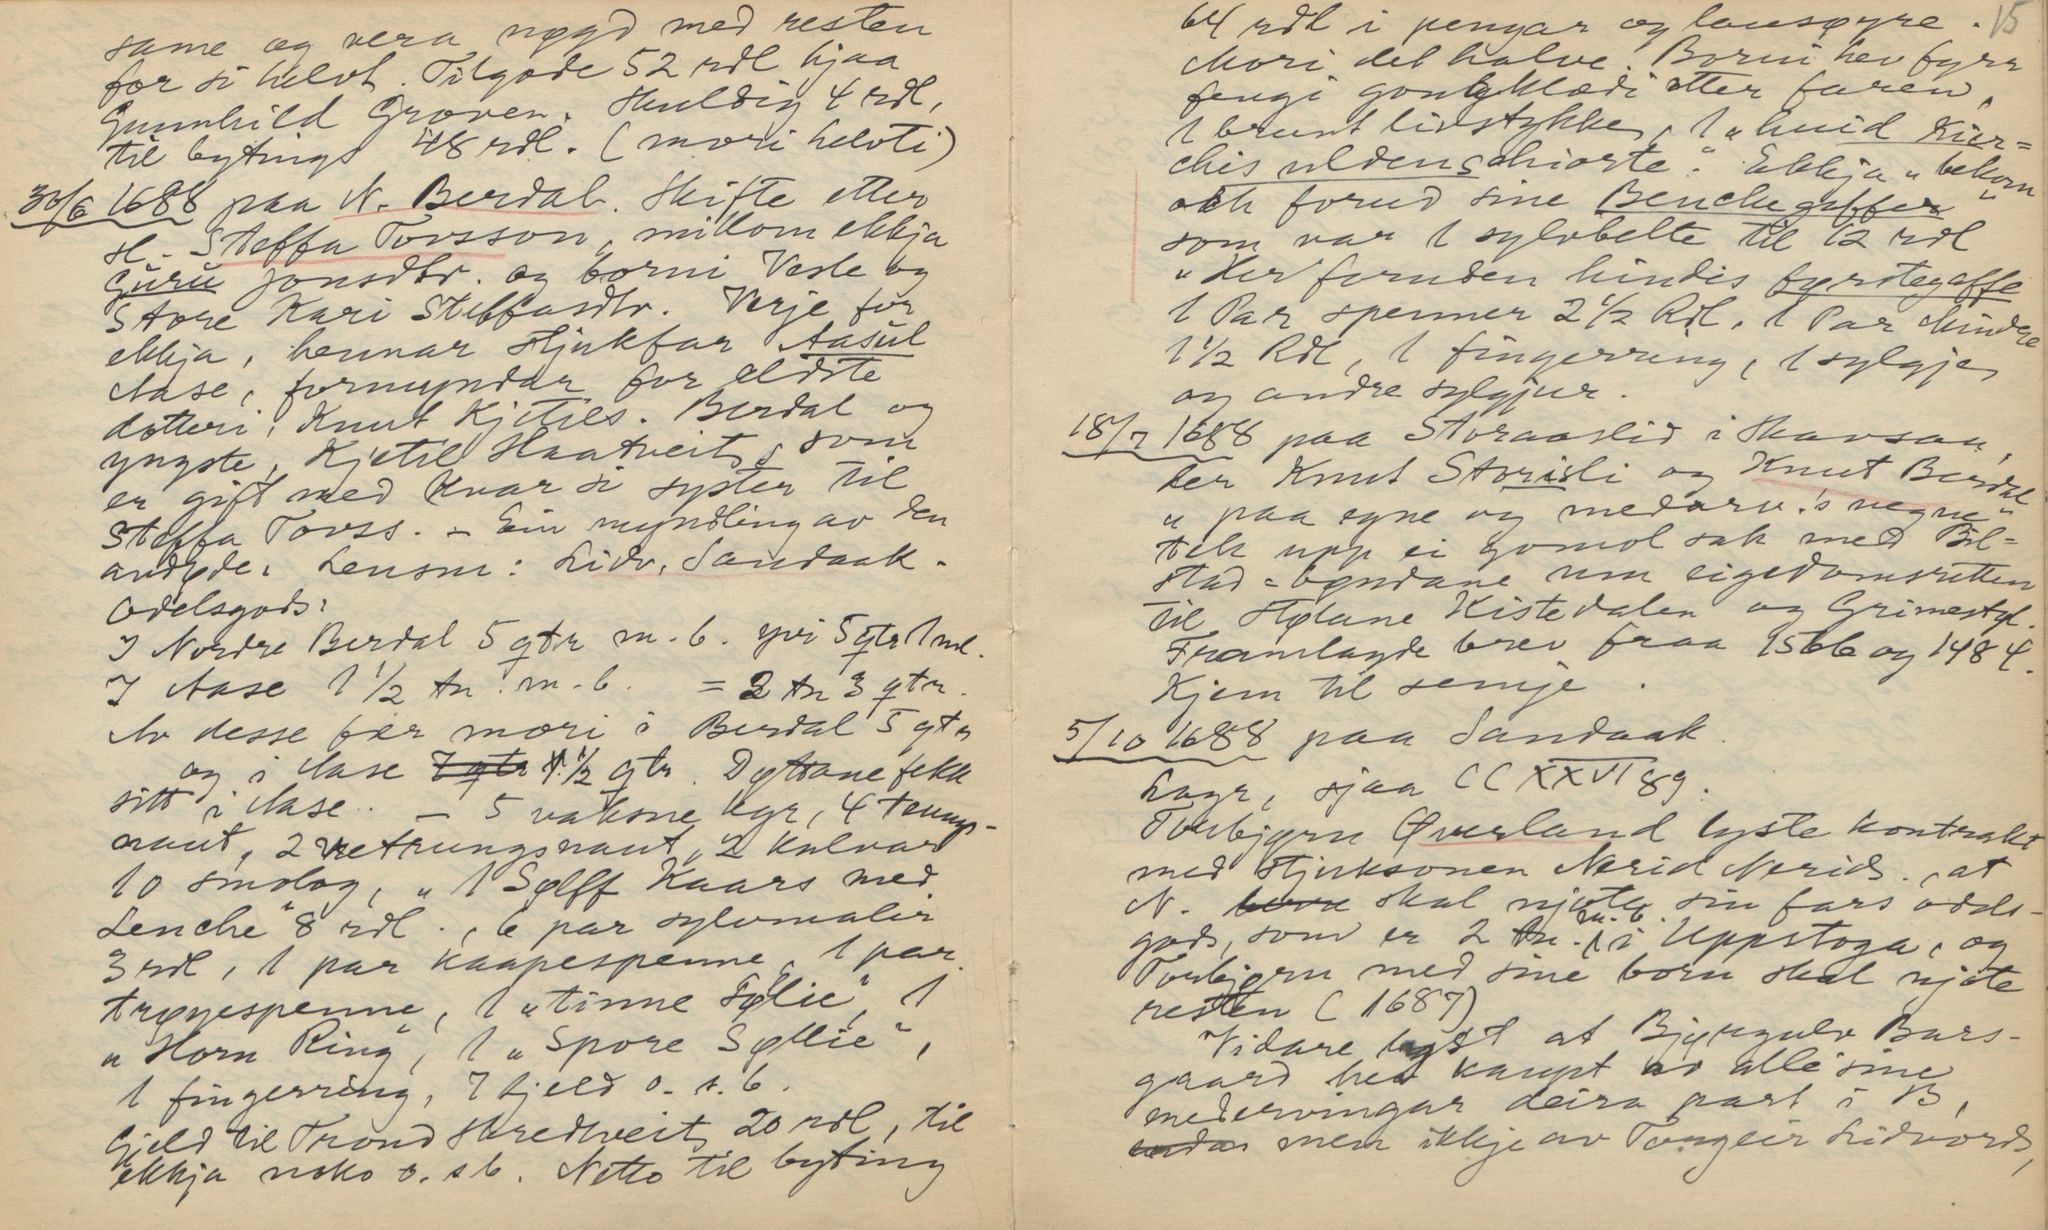 same og vera nøgd med resten
for si helvt. Tilgode 52 rdl hjaa
Gunnhild Groven. Skuldig 4 rdl,
til bytings 48 rdl. (mori helvti)
30/6 1688 paa N. Berdal. Skifte etter
sl. Steffa Torsson, millom ekkja
Guru Jonsdtr. og borni Vesle og
Store Kari Steffasdtr. Verje for
ekkja, hennar stjukfar Aasul
Aase, formyndar for eldste
dotteri, Knut Kjetils. Berdal og
yngste, Kjetil Haatveit, som
er gift med kvar si syster til
Steffa Torss. - Ein myndling av den
avdøde. Lensm: Lidv. Sandaak.
Odelsgods:
I Nordre Berdal 5 qtr m.b. yvi 5 qtr 1 ml.
I Aase 1 1/2 tn. m.b. = 2 tn 3 qtr.
Av desse fær mori i Berdal 5 qtr
og i Aase 7 qtr 1 1/2 qtr. Døtrane fekk
sitt i Aase. - 5 vaksne kyr, 4 tvungs-
naut, 2 vetrungsnaut, 2 kalvar
10 smalog, "1 Sølff Kaars med
Lenche" 8 rdl., 6 par sylvmalir
3 rdl, 1 par kaapespenne, 1 par
trøyespenne, 1 "tinne Sølie", 1
"Horn Ring", 1 "Spore Søllie",
1 fingerring, 7 fjeld o.s.b.
Gjeld til Trond Skredtveit 20 rdl, til
ekkja noko o.s.b. Netto til byting
15
64 rdl i pengar og lausøyre.
Mori det halve. Borni hev fyrr
fengi gongklædi etter faren,
1 brunt livstykke, 1 "huid Kier=
chis ulden schiorte". Ekkja "bekom
och forud sine Benchegaffer"
som var 1 sylvbelte til 12 rdl
"Her foruden hindis fyrstegaffe
1 Par spenner 2 1/2 Rdl, 1 Par mindre
1 1/2 Rdl, 1 fingerring, 1 sylgje
og andre sylgjur.
18/7 1688 paa Storaaslid i Skavsaa,
der Knut Storisli og Knut Berdal
"paa egne og medarv.'s vegne"
tek upp ei gomol sak med Bil=
stad=bøndane um eigedomsretten
til Hølane Kistedalen og Grimestøl.
Framlagde brev fraa 1566 og 1484.
Kjem til semje.
5/10 1688 paa Sandaak.
Lagr, sjaa CCXXVI 89.
Torbjørn Øverland lyste kontrakt
med stjuksonen Nerid Nerids., at
N. skal njote sin fars odels-
gods, som er 2 tn. m.b. i Uppstoga, og
Torbjørn med sine born skal njote
resten (1687)
Vidare lyst at Bjørgulv Bars-
gaard hev kaupt av alle sine
medervingar deira part i B,
men ikkje av Tongleir Lidvords,